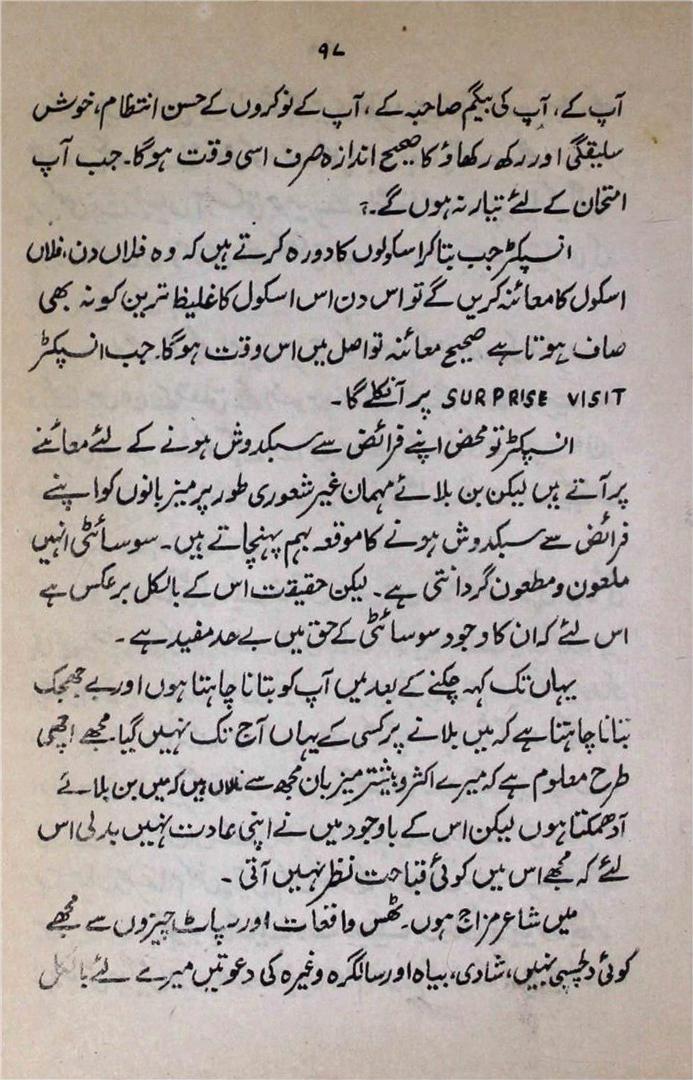 ۹۷
آپ کے، آپ کی بیگم صاحبہ کے، آپ کے نوکروں کے حسن انتظام، خوش
سلیقگی اور رکھ رکھاؤ کا صحیح اندازہ صرف اسی وقت ہوگا۔ جب آپ
امتحان کے لئے تیار نہ ہوں گے۔؟
انسپکٹر جب بتا کر اسکولوں کا دورہ کرتے ہیں کہ وہ فلاں دن، فلاں
اسکول کا معائنہ کریں گے تو اس دن اس اسکول کا غلیظ ترین کونہ بھی
صاف ہوتا ہے صحیح معائنہ تو اصل میں اس وقت ہوگا۔ جب انسپکٹر
SURPRISE VISIT پر آنکلے گا۔
انسپکٹر تو محض اپنے فرائض سے سبکدوش ہونے کے لئے معائنے
پر آتے ہیں لیکن بن بلائے مہمان غیر شعوری طور پر میزبانوں کو اپنے
فرائض سے سبکدوش ہونے کا موقعہ بہم پہنچاتے ہیں۔ سوسائٹی انہیں
ملعون و مطعون گردانتی ہے۔ لیکن حقیقت اس کے بالکل برعکس ہے
اس لئے کہ ان کا وجود سوسائٹی کے حق میں بے حد مفید ہے۔
یہاں تک کہہ چکنے کے بعد میں آپ کو بتانا چاہتا ہوں اور بے جھجک
بتانا چاہتا ہے کہ میں بلانے پر کسی کے یہاں آج تک نہیں گیا۔ مجھے اچھی
طرح معلوم ہے کہ میرے اکثر و بیشتر میزبان مجھ سے نالاں ہیں کہ میں بن بلائے
آدھمکتا ہوں لیکن اس کے باوجود میں نے اپنی عادت نہیں بدلی اس
لئے کہ مجھے اس میں کوئی قباحت نظر نہیں آتی۔
میں شاعر مزاج ہوں۔ ٹھس واقعات اور سپاٹ چیزوں سے مجھے
کوئی دلچسپی نہیں، شادی، بیاہ اور سالگرہ وغیرہ کی دعوتیں میرے لئے بالکل